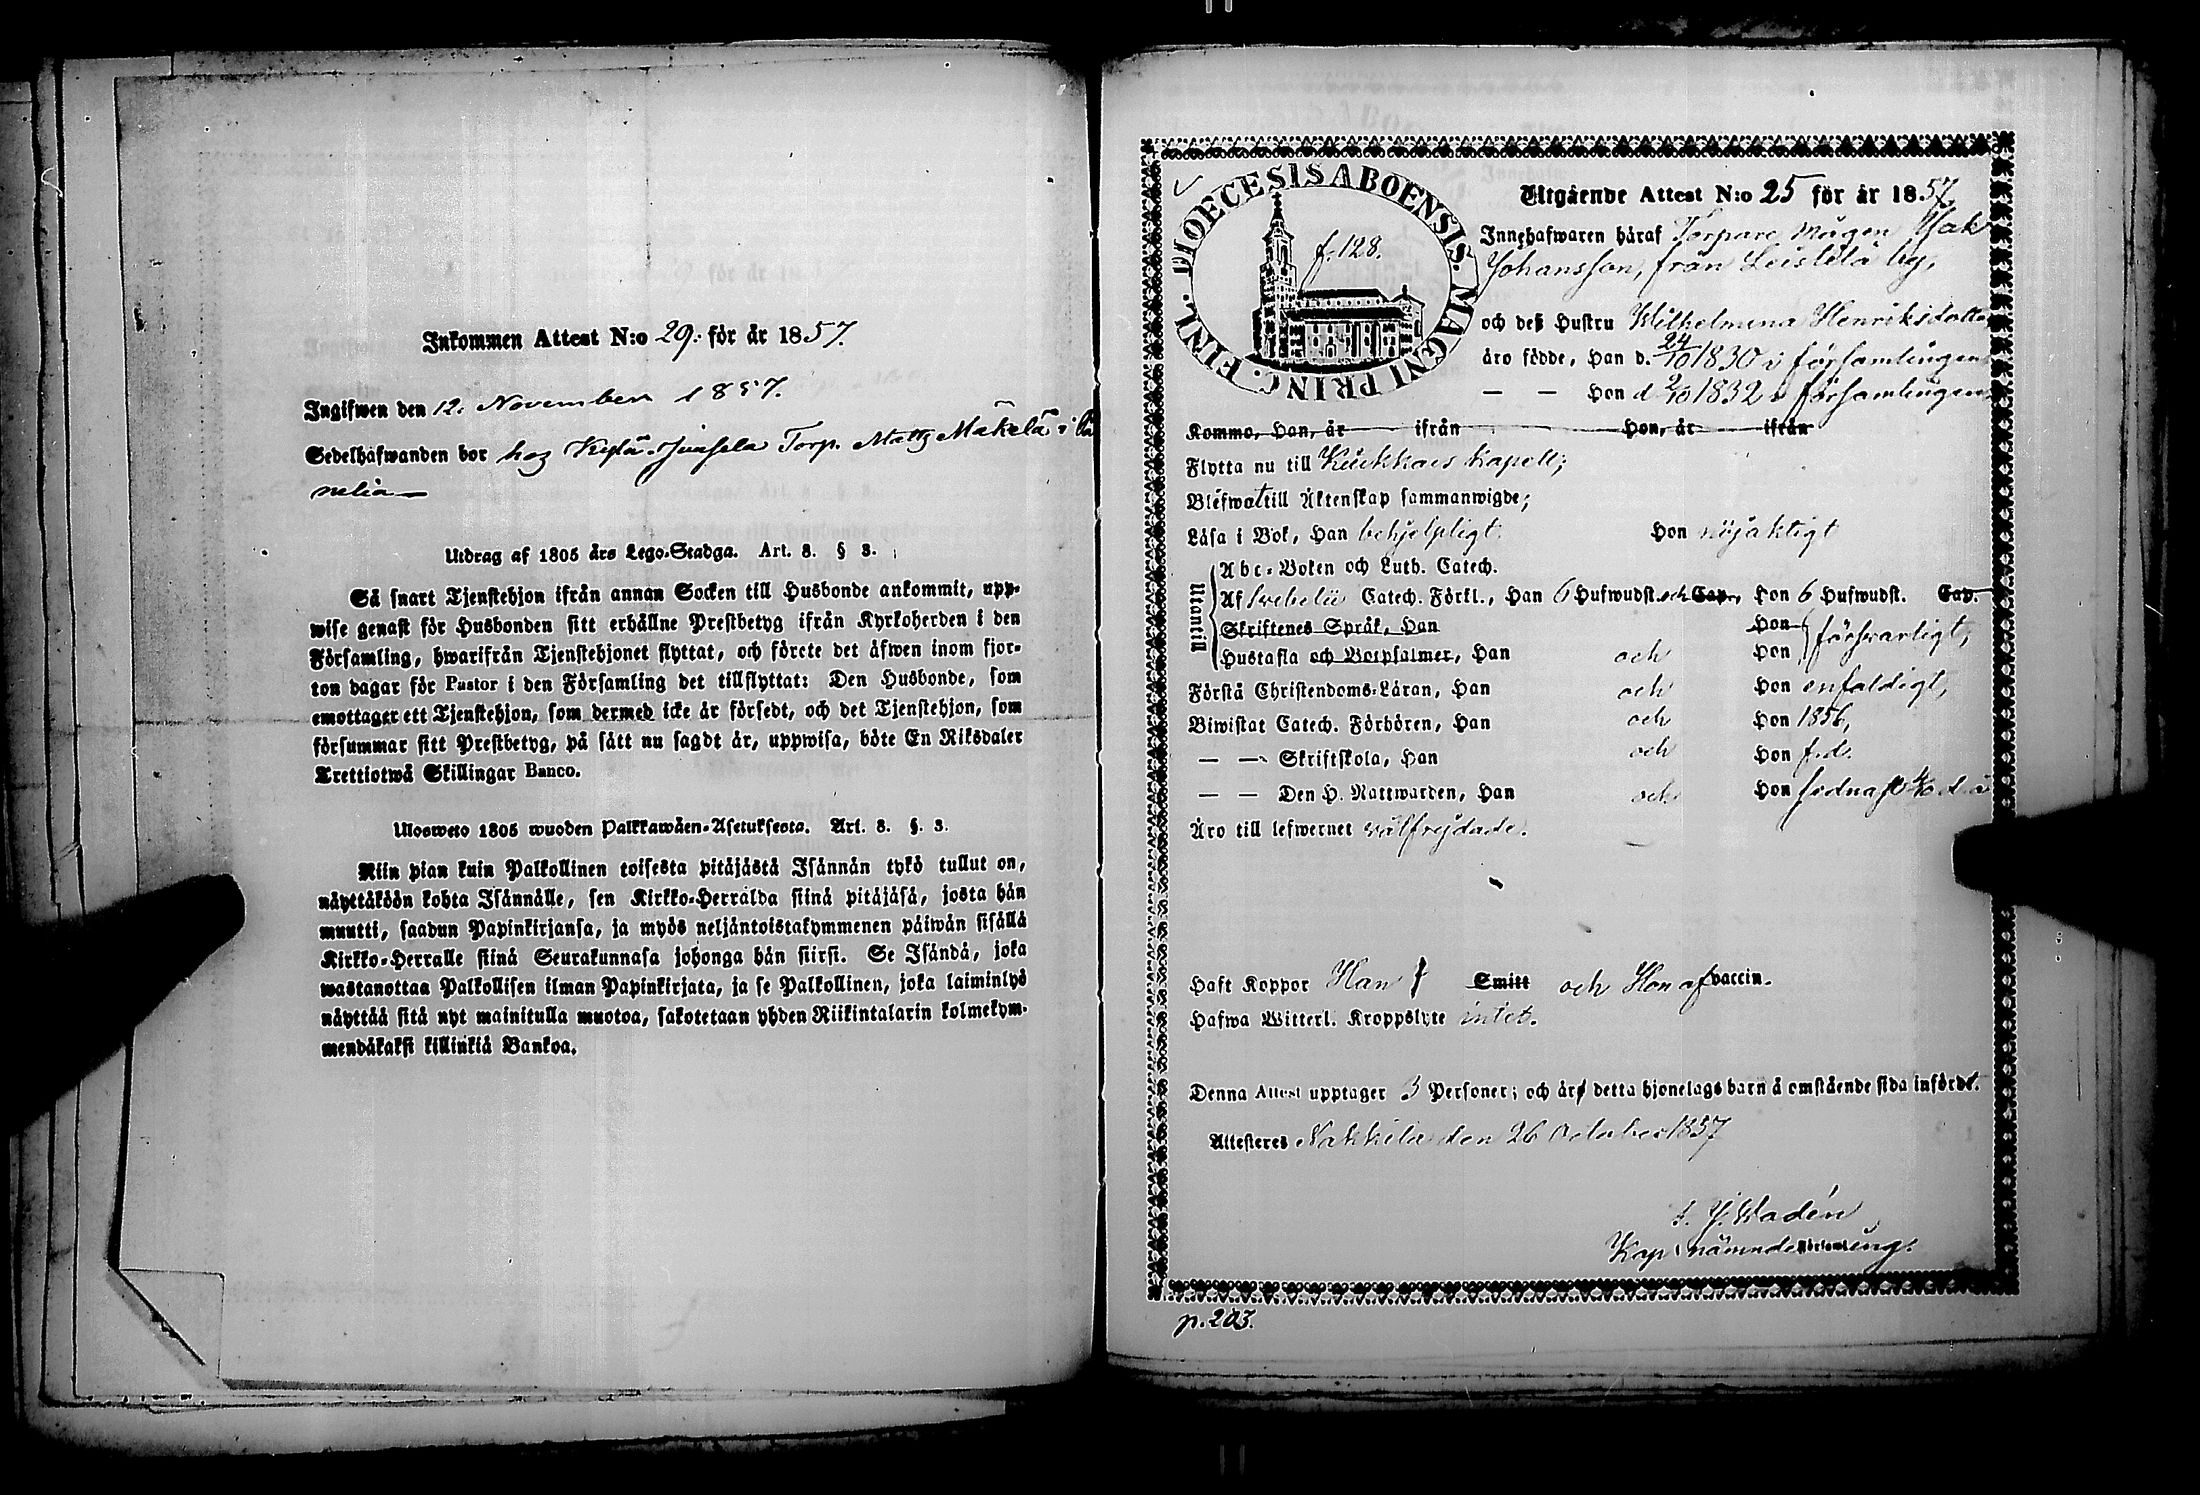 Inkommen Attest N:o 29. för år 1857.
Ingifwen den 12. November 1857.
Sedelhafwanden bor hos Kylä-Junsela Torp. Matts Mäkelä i
nelia
Utdrag af 1805 års Lego-Stadga. Art. 8. § 3.
Så snart Tjenstehjon ifrån annan Socken till Husbonde ankommit, upp-
wise genast för Husbonden sitt erhållne Prestbetyg ifrån Kyrkoherden i den
Församling, hwarifrån Tjenstehjonet flyttat, och förete det äfwen inom fjor-
ton dagar för Pastor i den Församling det tillflyttat: Den Husbonde, som
emottager ett Tjenstehjon, som dermed icke är försedt, och det Tjenstehjon, som
försummar sitt Prestbetyg, på sätt nu sagdt är, uppwisa, böte En Riksdaler
Trettiotwå Skillingar Banco.
Ulosweto 1805 wuoden Palkkawäen-Asetuksesta. Art. 8. §. 3.
Niin pian kuin Palkollinen toisesta pitäjästä Isännän tykö tullut on,
näyttäköön kohta Isännälle, sen Kirkko-Herralda siinä pitäjäsä, josta hän
muutti, saadun Papinkirjansa, ja myös neljäntoistakymmenen päiwän sisällä
Kirkko-Herralle siinä Seurakunnasa johonga hän siirsi. Se Isändä, joka
wastanottaa Palkollisen ilman Papinkirjata, ja se Palkollinen, joka laiminlyö
näyttää sitä nyt mainitulla muotoa, sakotetaan yhden Riikintalarin kolmekym-
mendäkaksi killinkiä Bankoa.
DIOECESIS ABOENSIS. MAGNI PRINC. FINL.
f. 128.
Utgående Attest N:o 25 för år 1857.
Innehafwaren häraf Torpare mågen Isak
Johansson, från Leistilä by,
och deß Hustru Wilhelmina Henriksdotter
äro födde, Han d. 24/10 1830 i församlingen
— — Hon d 2/10 1832 i församlingen
Kommo, Han, år ifrån Hon, år ifrån
Flytta nu till Kiukkais Kapell;
Blefwo till Äktenskap sammanwigde;
Läsa i Bok, Han behjelpligt. Hon nöjaktigt
Utantill
Abc-Boken och Luth. Catech.
Af Svebelii Catech. Förkl., Han 6 Hufwudst. och Cap., Hon 6 Hufwudst. Cap.
Skriftenes Språk, Han Hon
Hustafla och Botpsalmer, Han och Hon försvarligt,
Förstå Christendoms-Läran, Han och Hon enfaldigt,
Biwistat Catech. Förhören, Han och Hon 1856,
— — Skriftskola, Han och Hon f.d.
— — Den H. Nattwarden, Han och Hon sednast 4/10 d. å
Äro till lefwernet välfrejdade.
Haft Koppor Han Smitt och Hon af vaccin.
Hafwa Witterl. Kroppslyte intet.
Denna Attest upptager 3 Personer; och är detta hjonelags barn å omstående sida infördt.
Attesteras Nakkila den 26 October 1857
F. J. Wadén
Kap. i nämnde Församling.
p. 203.